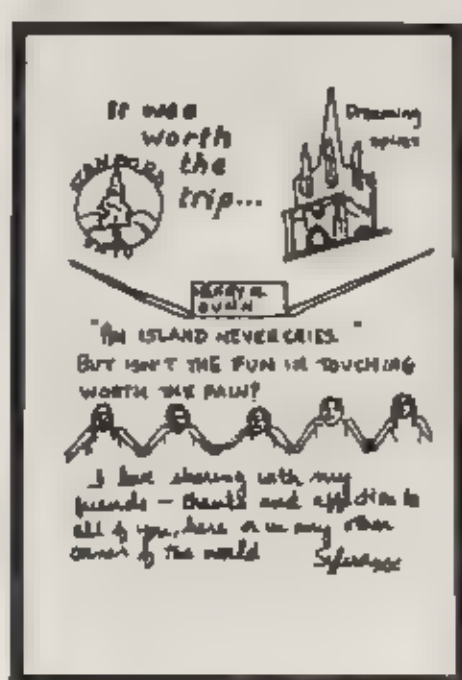 It was
worth
the
trip...
Dreaming
spires
"AN ISLAND NEVER CRIES."
BUT ISN'T THE FUN IN TOUCHING
WORTH THE PAIN?
I love sharing with my
friends - thanks and affection to
all of you, here or in any other
corner of the world